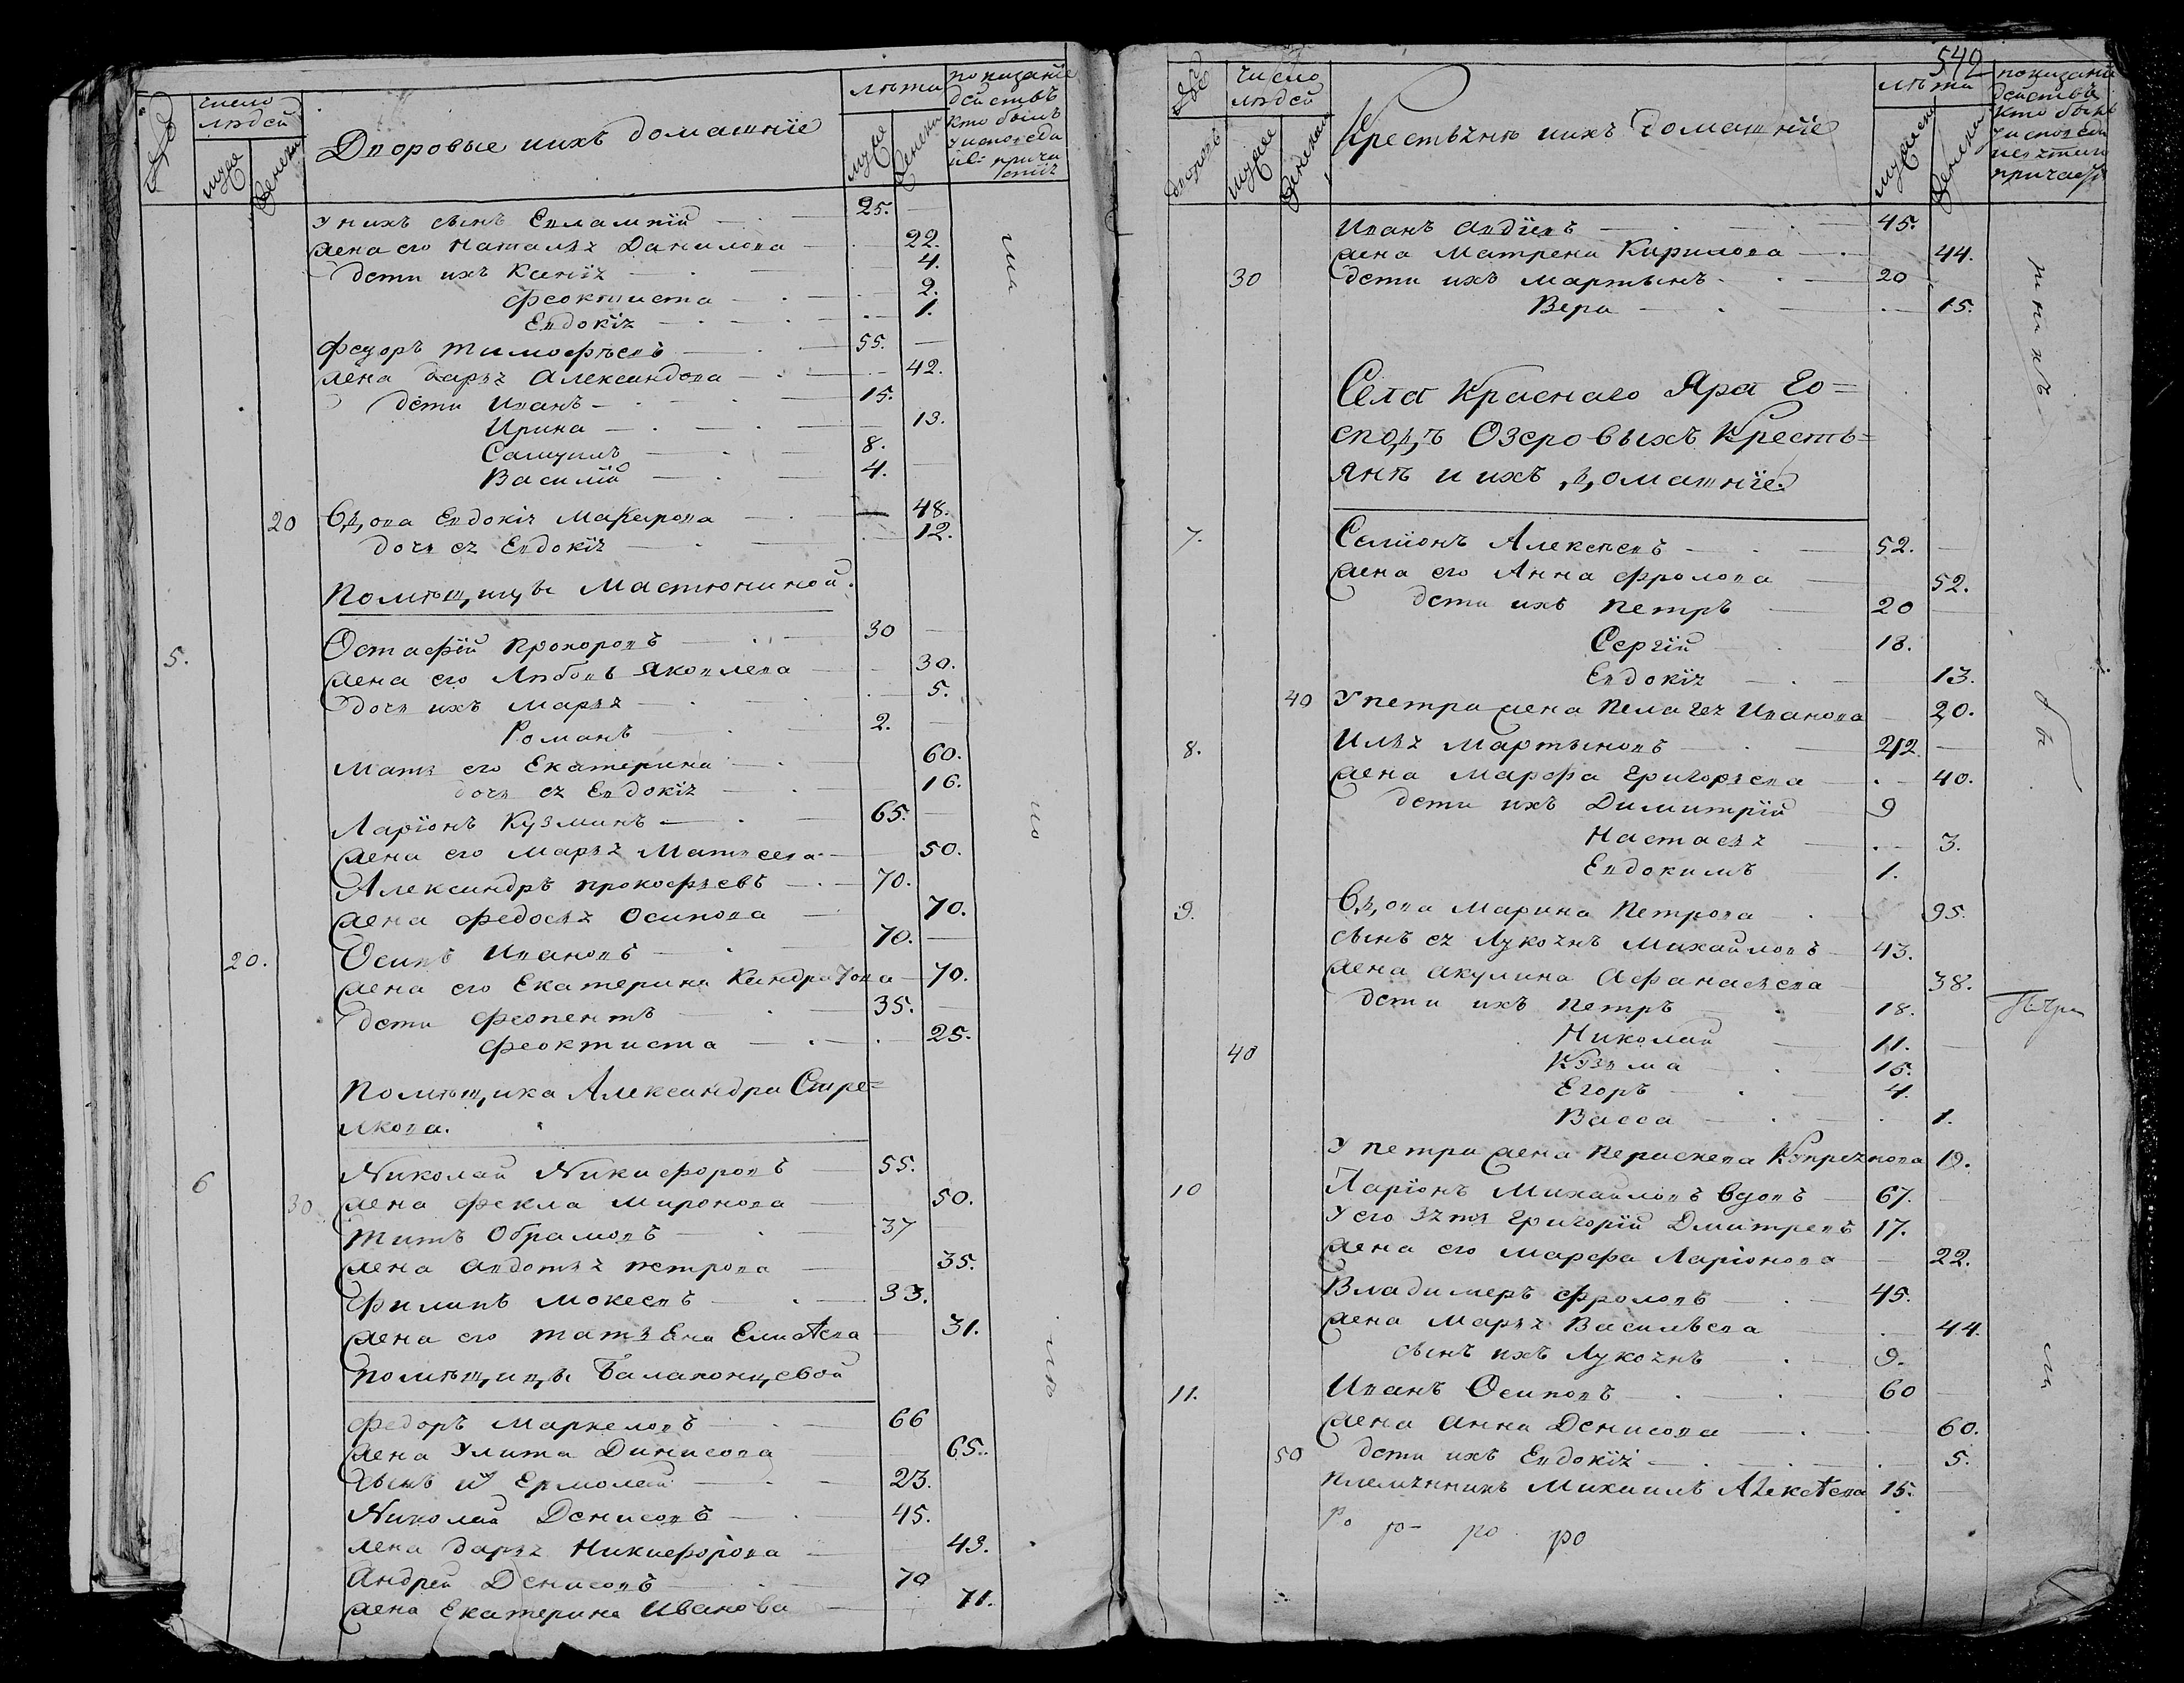 число
людей
мужс
женска
Дворовые иихъ домашніе
лѣта
мужс
женска
показаніе
действъ
кто былъ
уисповеди
исв: прича
стія
у нихъ сынъ Евлампій 25.
жена его Наталья Данилова 22.
дети ихъ Ксенія 4.
Феоктиста 2.
Евдокія 1.
Федоръ Тимофѣевъ 55.
жена дарья Александрова 42.
дети Иванъ 15.
Ирина 13.
Самуилъ 8.
Василій 4.
20 Вдова Евдокія Макарова 48.
дочь ея Евдокія 12.
Помѣщицы Мастюниной.
5. Остафій Прохоровъ 30
жена его Любовь Яковлева 30.
дочь ихъ Марья 5.
Романъ 2.
Мать его Екатерина 60.
дочь ея Евдокія 16.
Ларіонъ Кузминъ 65.
жена его Марья Матвеева 50.
Александръ прокофьевъ 70.
жена федосья Осипова 70.
20. Осипъ Ивановъ 70.
жена его Екатерина Кандратова 70.
дети феопентъ 35.
феоктиста 25.
Помѣщика Александра Стре=
лкова.
6 Николай Никифоровъ 55.
30 жена фекла миронова 50.
титъ Обрамовъ 37
жена авдотья петрова 35.
филипъ мокеевъ 33.
жена его татьяна Елисѣева 31.
помѣщицы Балахонцевой
федоръ Маркеловъ 66
жена Улита Динисова 65.
сынъ и Ермолай 23.
Николай Денисовъ 45.
жена дарья Никифорова 43.
Андрей Денисовъ 70
жена Екатерина Иванова 71.
542
дворовъ
число
людей
мужс
женска
Крестьянѣ иихъ домашніе
лѣта
мужска
женска
показаніе
действъ
кто былъ
уисповеди
исвятыи
причас
Иванъ авдіевъ 45.
жена Матрена Кирилова 44.
30 дети ихъ мартынъ 20
Вера 15.
Села Краснаго Яра Го=
сподъ Озеровыхъ Кресть=
янѣ и ихъ домашніе
7. Семіонъ Алексѣевъ 52.
жена его Анна фролова 52.
дети ихъ петръ 20
Сергій 18.
Евдокія 13.
40 У петра жена Пелагея Иванова 20.
8. Илья Мартыновъ 42
жена Марфа Григорьева 40.
дети ихъ Димитрій 9
Настасья 3.
Евдокимъ 1.
9. Вдова Марина Петрова 95.
сынъ ея Лукоянъ Михайловъ 43.
жена акулина Афанасьева 38.
дети ихъ петръ 18.
Николай 11.
40 Кузьма 15.
Егоръ 4.
Васса 1.
У петра жена Перасковa Купреянова 19.
10 Ларіонъ Михайловъ вдовъ 67.
У его зять Григорій Дмитревъ 17.
жена его марфа Ларіонова 22.
Владимеръ фроловъ 45.
жена Марья Васильева 44.
сынъ ихъ Лукоянъ 9.
11. Иванъ Осиповъ 60
жена анна Денисова 60.
50 дети ихъ Евдокія 5.
племянникъ Михаилъ Алексѣевъ 15.
ро ро ро ро